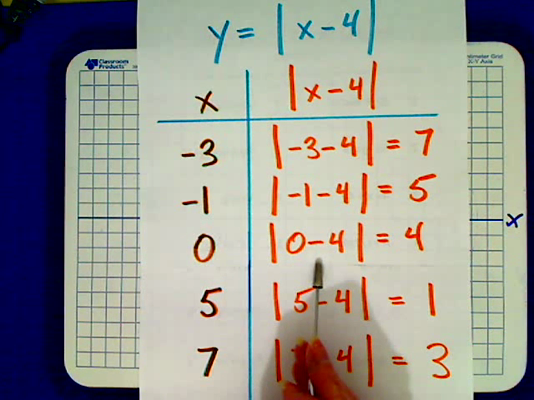 y = |x-4|
Classroom Products
X/Y Axis
x |x-4|
-3 |-3-4| = 7
-1 |-1-4| = 5
0 |0-4| = 4
x
5 |5-4| = 1
7 | 4| = 3